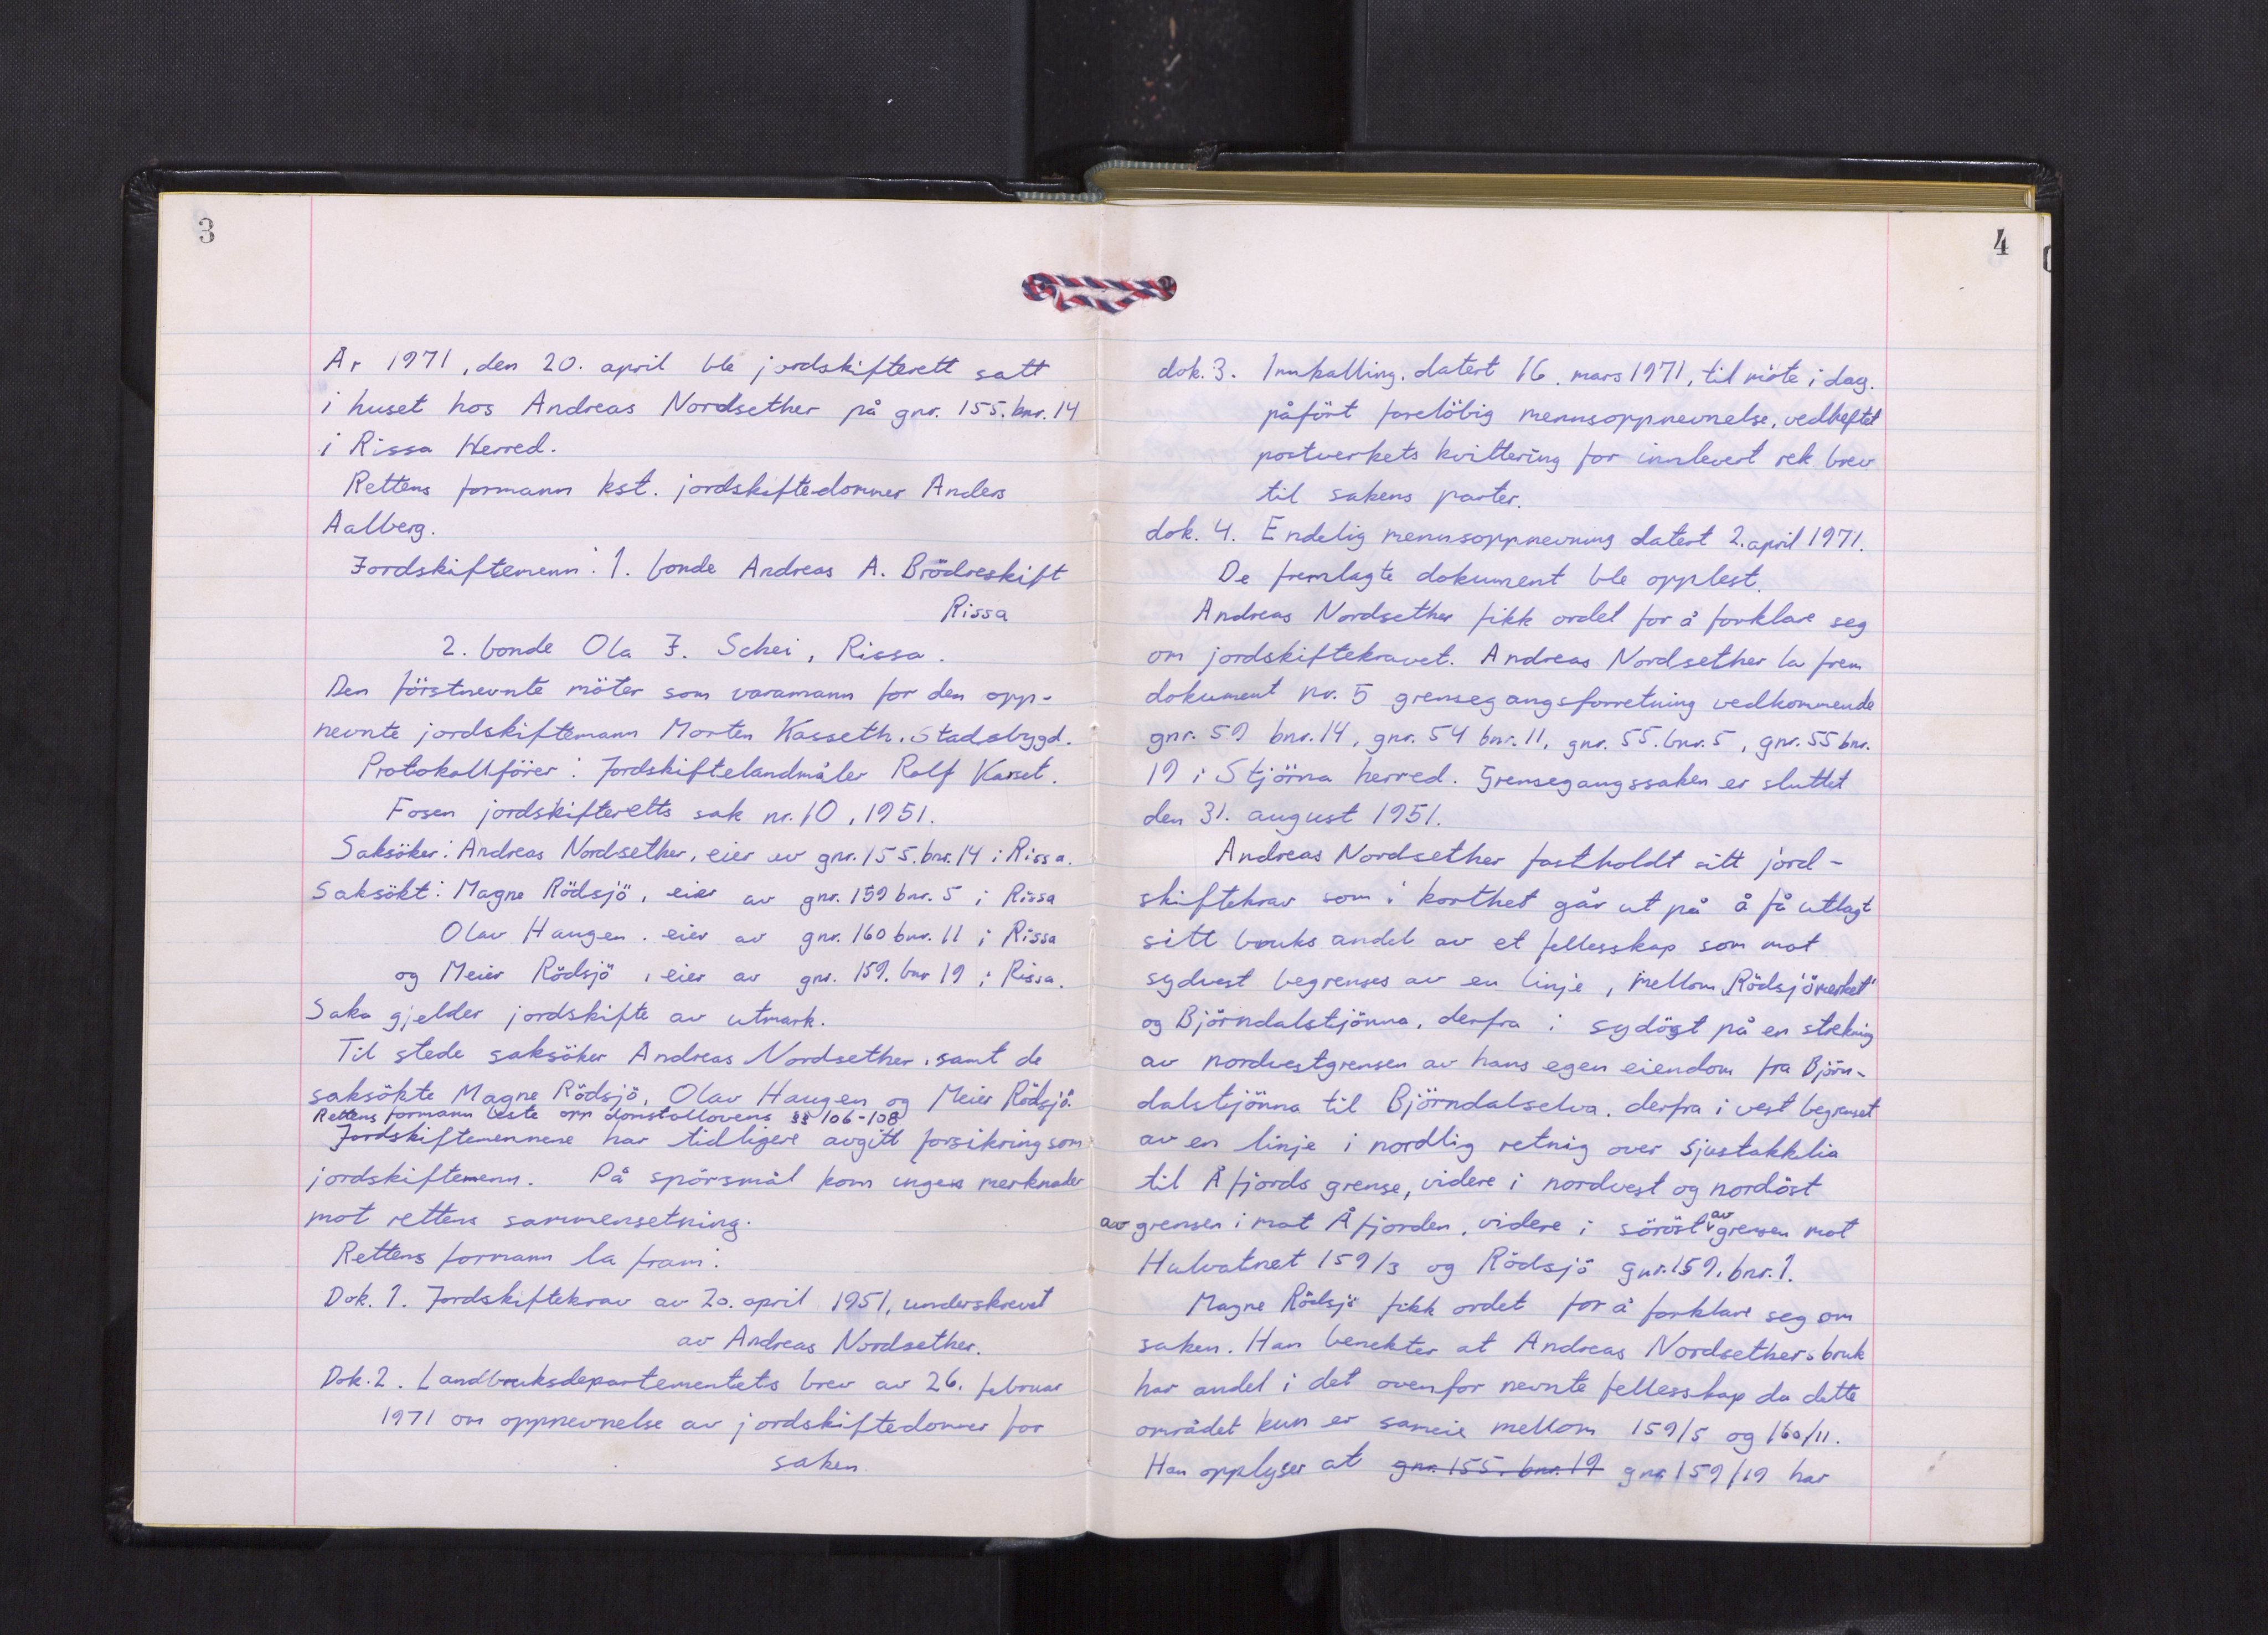 3
År 1971, den 20. april ble jordskifterett satt
i huset hos Andreas Nordsether på gnr. 155. bnr. 14
i Rissa Herred.
Rettens formann kst. jordskiftedommer Anders
Aalberg.
Jordskiftemenn: 1. bonde Andreas A. Brödreskift
Rissa
2. bonde Ola J. Schei, Rissa.
Den förstnevnte möter som varamann for den opp-
nevnte jordskiftemann Morten Kasseth, Stadsbygd.
Protokollförer: Jordskiftelandmåler Rolf Karset.
Fosen jordskifteretts sak nr. 10, 1951.
Saksöker: Andreas Nordsether, eier av gnr. 155. bnr. 14 i Rissa.
Saksökt: Magne Rödsjö, eier av gnr. 159 bnr. 5 i Rissa
Olav Haugen. eier av gnr. 160 bnr. 11 i Rissa
og Meier Rödsjö, eier av gnr. 159. bnr 19 i Rissa.
Saka gjelder jordskifte av utmark.
Til stede saksöker Andreas Nordsether, samt de
saksökte Magne Rödsjö, Olav Haugen og Meier Rödsjö.
Rettens formann leste opp domstollovens §§ 106-108
Jordskiftemennene har tidligere avgitt forsikring som
jordskiftemenn. På spörsmål kom ingen merknader
mot rettens sammensetning.
Rettens formann la fram:
Dok. 1. Jordskiftekrav av 20. april 1951, underskrevet
av Andreas Nordsether.
Dok. 2. Landbruksdepartementets brev av 26. februar
1971 om oppnevnelse av jordskiftedommer for
saken
4
dok. 3. Innkalling. datert 16. mars 1971, til möte i dag.
påfört foreløbig mennsoppnevnelse, vedheftet
postverkets kvittering for innlevert rek brev
til sakens parter.
dok. 4. Endelig mennsoppnevning datert 2. april 1971.
De fremlagte dokument ble opplest.
Andreas Nordsether fikk ordet for å forklare seg
om jordskiftekravet. Andreas Nordsether la frem
dokument nr. 5 grensegangsforretning vedkommende
gnr. 59 bnr. 14, gnr. 54 bnr. 11, gnr. 55. bnr. 5, gnr. 55 bnr.
19 i Stjörna herred. Grensegangssaken er sluttet
den 31. august 1951.
Andreas Nordsether fastholdt sitt jord-
skiftekrav som i korthet går ut på å få utlagt
sitt bruks andel av et fellesskap som mot
sydvest begrenses av en linje, mellom "Rödsjömerket"
og Björndalstjönna, derfra i sydöst på en strekning
av nordvestgrensen av hans egen eiendom fra Björn-
dalstjönna til Björndalselva. derfra i vest begrenset
av en linje i nordlig retnig over Sjustakklia
til Å fjords grense, videre i nordvest og nordöst
av grensen i mot Å fjorden, videre i söröst av grensen mot
Hulvatnet 159/3 og Rödsjö gnr. 159. bnr. 1.
Magne Rödsjö fikk ordet for å forklare seg om
saken. Han benekter at Andreas Nordsethers bruk
har andel i det ovenfor nevnte fellesskap da dette
området kun er sameie mellom 159/5 og 160/11.
Han opplyser at gnr. 155. bnr. 19 gnr 159/19 har